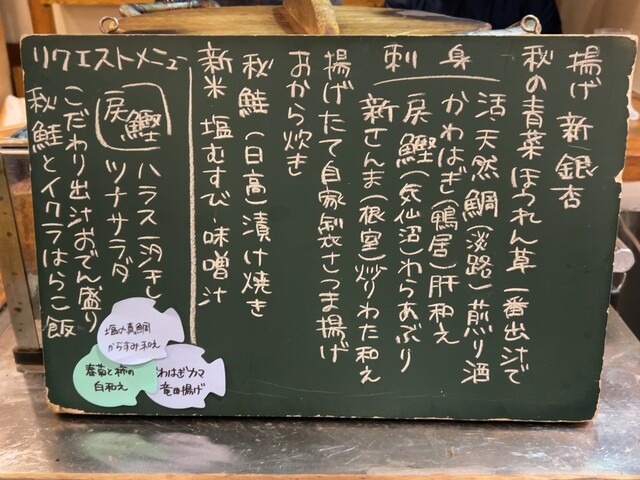 揚げ新銀杏
秋の青菜ほうれん草 一番出汁で
刺身
活 天然鯛(淡路)煎り酒
かわはぎ(鴨居)肝和え
戻鰹(気仙沼)わらあぶり
新さんま(根室)炒りわた和え
揚げたて自家製さつま揚げ
おから炊き
秋鮭(日高)漬け焼き
新米 塩むすび・味噌汁
リクエストメニュー
戻鰹
ハラス一汐干し
ツナサラダ
こだわり出汁おでん盛り
秋鮭とイクラはらこ飯
塩〆真鯛
からすみ和え
春菊と柿の
白和え
わはぎカマ
竜田揚げ